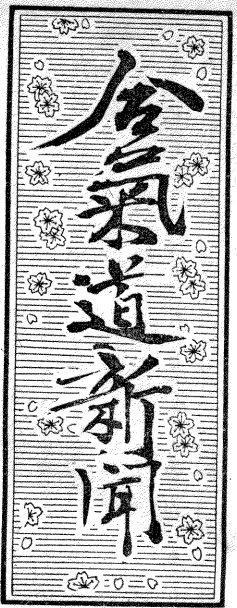 合氣道新聞